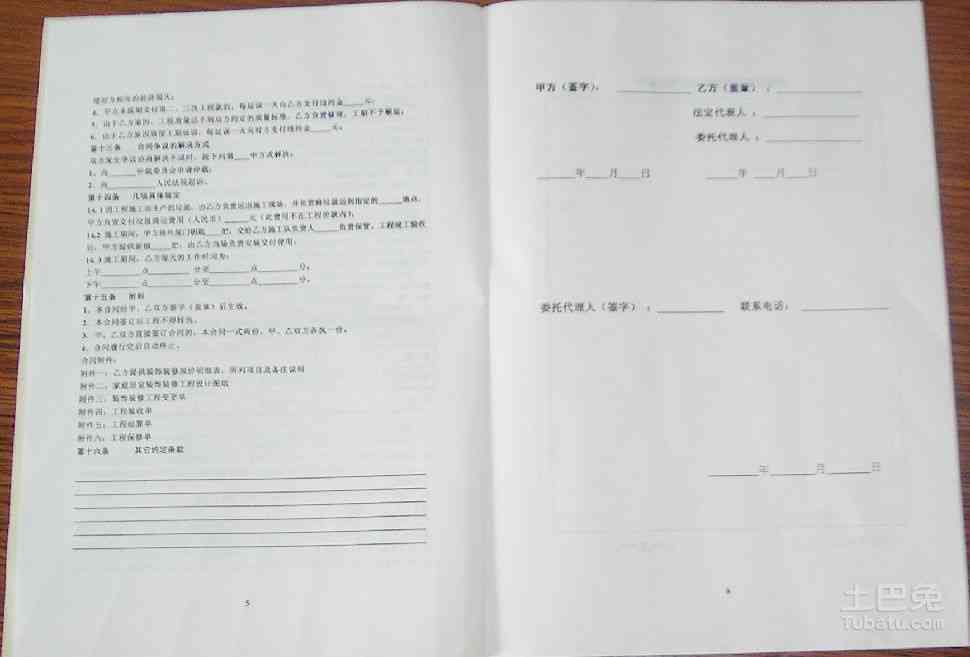 使对方相应的经济损失;
4、甲方未按期交付第二、三次工程款的,每延误一天向乙方支付违约金____元;
5、由于乙方原因,工程质量达不到双方约定的质量标准,乙方负责修理,工期不予顺延;
6、由于乙方原因致使工期延误,每延误一天向对方支付违约金____元;
第十三条 合同争议的解决方式
双方发生争议协商解决不成时,按下列第___种方式解决:
1、向______仲裁委员会申请仲裁;
2、向__________人民法院起诉。
第十四条 几项具体规定
14.1 因工程施工而产生的垃圾,由乙方负责运出施工现场,并负责将垃圾运到指定的______地点,
甲方负责支付垃圾清运费用(人民币)______元(此费用不在工程价款内);
14.2 施工期间,甲方将外屋门钥匙____把,交给乙方施工队负责人______负责保管。工程竣工验收
后,甲方提供新锁____把,由乙方当场负责安装交付使用;
14.3 施工期间,乙方每天的工作时间为:
上午________点________分至________点________分。
下午________点________分至________点________分。
第十五条 附则
1、本合同经甲、乙双方签字(盖章)后生效。
2、本合同签订后工程不得转包。
3、甲、乙双方直接签订合同的,本合同一式两份,甲、乙双方各执一份。
4、合同履行完后自动终止。
合同附件:
附件一:乙方提供装饰装修报价明细表、所列项目及备注说明
附件二:家庭居室装饰装修工程设计图纸
附件三:装饰装修工程变更单
附件四:工程验收单
附件五:工程结算单
附件六:工程保修单
第十六条 其它约定条款
5
甲方(签字):__________ 乙方(盖章):__________
法定代表人:__________
委托代理人:__________
______年____月____日 ____年____月____日
委托代理人(签字):________ 联系电话:__________
______年______月______日
6
土巴兔
Tubatu.com